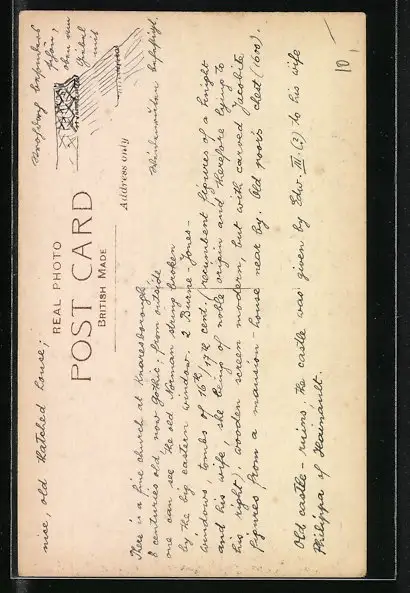 nice, old thatched house;
Strohdach besonders
schön,
oben am
Giebel
mit
REAL PHOTO
POST CARD
BRITISH MADE
Address only
There is a fine church at Knaresborough
8 centuries old, now Gothic; from outside
one can see the old Norman string broken
by the big eastern window. 2 Burne-Jones-
windows, tombs of 16th/17th cent. (recumbent figures of a knight
and his wife, she being of noble origin and therefore lying to
his right), wooden screen modern, but with carved Jacobite
figures from a mansion house near by. Old poors chest (1600).
Old castle - ruins, the castle was given by Edw. III (?) to his wife
Philippa of Hainault.
10